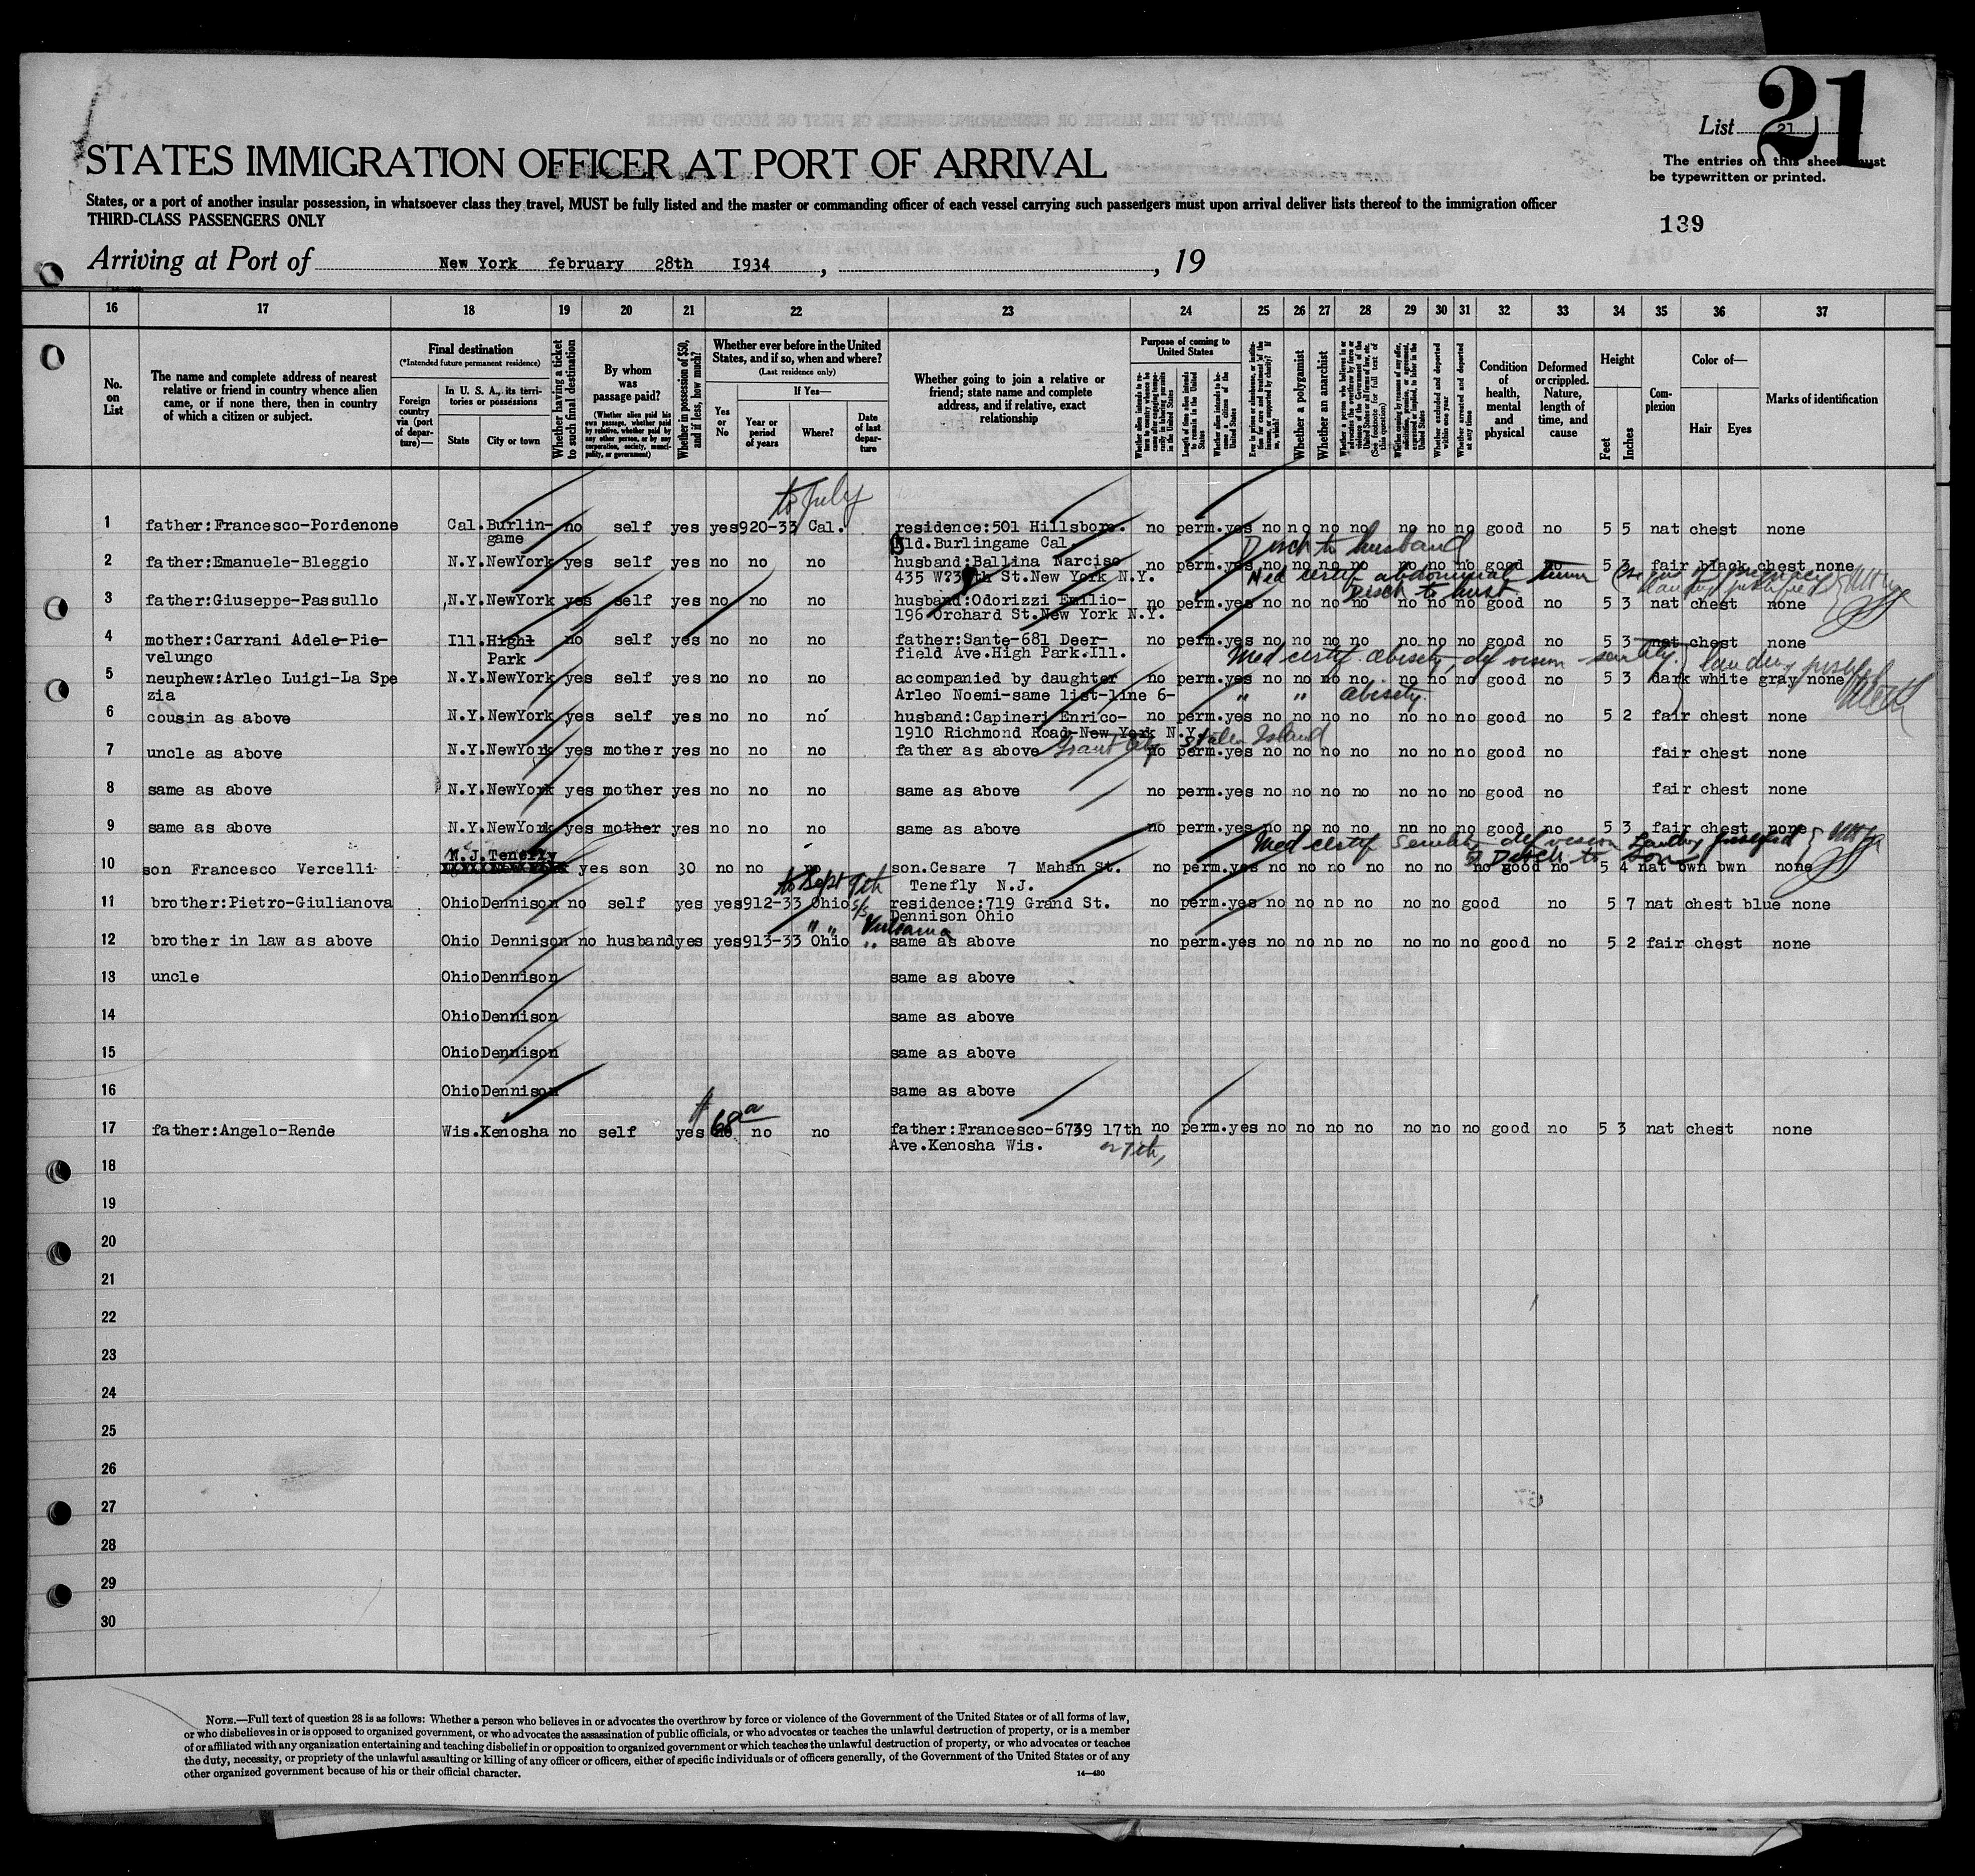 21
List 21
The entries on this sheet must
be typewritten or printed.
STATES IMMIGRATION OFFICER AT PORT OF ARRIVAL
States, or a port of another insular possession, in whatsoever class they travel, MUST be fully listed and the master or commanding officer of each vessel carrying such passengers must upon arrival deliver lists thereof to the immigration officer
THIRD-CLASS PASSENGERS ONLY
139
Arriving at Port of New York february 28th 1934, , 19
16 17 18 19 20 21 22 23 24 25 26 27 28 29 30 31 32 33 34 35 36 37
No. on List
The name and complete address of nearest relative or friend in country whence alien came, or if none there, then in country of which a citizen or subject.
Final destination
(*Intended future permanent residence)
Foreign country via (port of departure)—
In U. S. A., its territories or possessions
State
City or town
Whether having a ticket to such final destination
By whom was passage paid?
(Whether alien paid his own passage, whether paid by relative, whether paid by any other person, or by any corporation, society, municipality, or government)
Whether in possession of $50, and if less, how much?
Whether ever before in the United States, and if so, when and where?
(Last residence only)
Yes or No
If Yes—
Year or period of years
Where?
Date of last departure
Whether going to join a relative or friend; state name and complete address, and if relative, exact relationship
Purpose of coming to United States
Length of time alien intends to remain in the United States
Whether alien intends to become a citizen of the United States
Whether a polygamist
Whether an anarchist
Whether excluded and deported within one year
Whether arrested and deported at any time
Condition of health, mental and physical
Deformed or crippled. Nature, length of time, and cause
Height
Feet
Inches
Complexion
Color of—
Hair
Eyes
Marks of identification
to July
1 father:Francesco-Pordenone Cal. Burlin- no self yes yes 920-33 Cal. residence:501 Hillsboro. no perm. yes no no no no no no no good no 5 5 nat chest none
game Bld.Burlingame Cal.
Disch to husband
2 father:Emanuele-Bleggio N.Y. NewYork yes self yes no no no husband:Ballina Narciso no perm. yes no no no no no no no good no 5 3 fair black chest none
435 W?3 th St.New York N.Y.
Med certif abdominal
Disch to husb
3 father:Giuseppe-Passullo N.Y. NewYork yes self yes no no no husband:Odorizzi Emilio- no perm. yes no no no no no no no good no 5 3 nat chest none
196 Orchard St.New York N.Y.
4 mother:Carrani Adele-Pie- Ill. Highl no self yes no no no father:Sante-681 Deer- no perm. yes no no no no no no no good no 5 3 nat chest none
velungo Park field Ave.High Park.Ill.
Med certif obisety, def vision - senility. landing justified
5 neuphew:Arleo Luigi-La Spe N.Y. NewYork yes self yes no no no accompanied by daughter no perm. yes no no no no no no no good no 5 3 dark white gray none
zia Arleo Noemi-same list-line 6-
" " obisety.
6 cousin as above N.Y. NewYork yes self yes no no no husband:Capineri Enrico- no perm. yes no no no no no no no good no 5 2 fair chest none
1910 Richmond Road-New York N.Y.
Grant City Staten Island
7 uncle as above N.Y. NewYork yes mother yes no no no father as above no perm. yes no no no no no no no good no fair chest none
8 same as above N.Y. NewYork yes mother yes no no no same as above no perm. yes no no no no no no no good no fair chest none
9 same as above N.Y. NewYork yes mother yes no no no same as above no perm. yes no no no no no no no good no 5 3 fair chest none
Med certif Senility def vision Landing justified
Disch to Son
N.J. Tenefly
10 son Francesco Vercelli yes son 30 no no no son.Cesare 7 Mahan St. no perm. yes no no no no no no no good no 5 4 nat bwn bwn none
Tenefly N.J.
to Sept 9th
11 brother:Pietro-Giulianova Ohio Dennison no self yes yes 912-33 Ohio s/s residence:719 Grand St. no perm. yes no no no no no no good no 5 7 nat chest blue none
Dennison Ohio
" " Vulcania
12 brother in law as above Ohio Dennison no husband yes yes 913-33 Ohio " same as above no perm. yes no no no no no no no good no 5 2 fair chest none
13 uncle Ohio Dennison same as above
14 Ohio Dennison same as above
15 Ohio Dennison same as above
16 Ohio Dennison same as above
17 father:Angelo-Rende Wis. Kenosha no self yes no no no father:Francesco-6739 17th no perm. yes no no no no no no no good no 5 3 nat chest none
Ave.Kenosha Wis.
18
19
20
21
22
23
24
25
26
27
28
29
30
NOTE.—Full text of question 28 is as follows: Whether a person who believes in or advocates the overthrow by force or violence of the Government of the United States or of all forms of law,
or who disbelieves in or is opposed to organized government, or who advocates the assassination of public officials, or who advocates or teaches the unlawful destruction of property, or is a member
of or affiliated with any organization entertaining and teaching disbelief in or opposition to organized government or which teaches the unlawful destruction of property, or who advocates or teaches
the duty, necessity, or propriety of the unlawful assaulting or killing of any officer or officers, either of specific individuals or of officers generally, of the Government of the United States or of any
other organized government because of his or their official character.
14—430